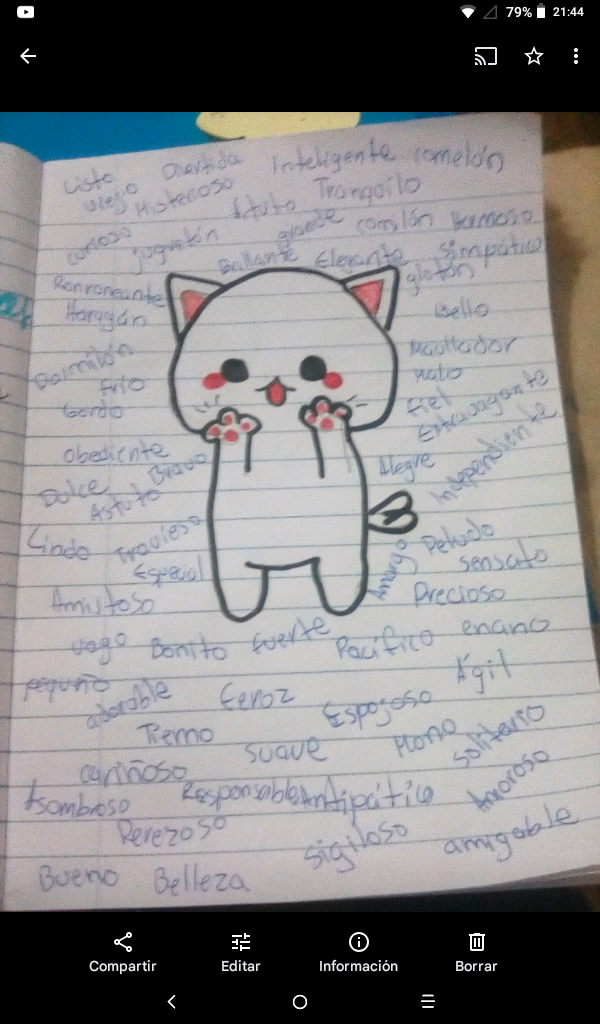 79% 21:44
Listo Divertida Inteligente comelón
viejo Misterioso Astuto Tranquilo
curioso juguetón grande comilón Hermoso
Brillante Elegante Simpático
Ronroneante glotón
Haragán Bello
Dormilón Maullador
frío Malo
Gordo Fiel
Extravagante
Obediente Bravo Alegre Independiente
Dulce Astuto
Lindo Travieso Peludo
Especial Amargo sensato
Amistoso Precioso
vago Bonito fuerte Pacífico enano
pequeño adorable Feroz Ágil
Tierno Esponjoso
suave Mono solitario
cariñoso
Asombroso Responsable Antipático Amoroso
Perezoso sigiloso amigable
Bueno Belleza
Compartir Editar Información Borrar